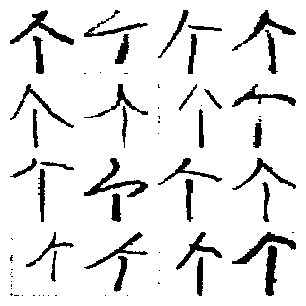 个个个个
个个个个
个个个个
个个个个